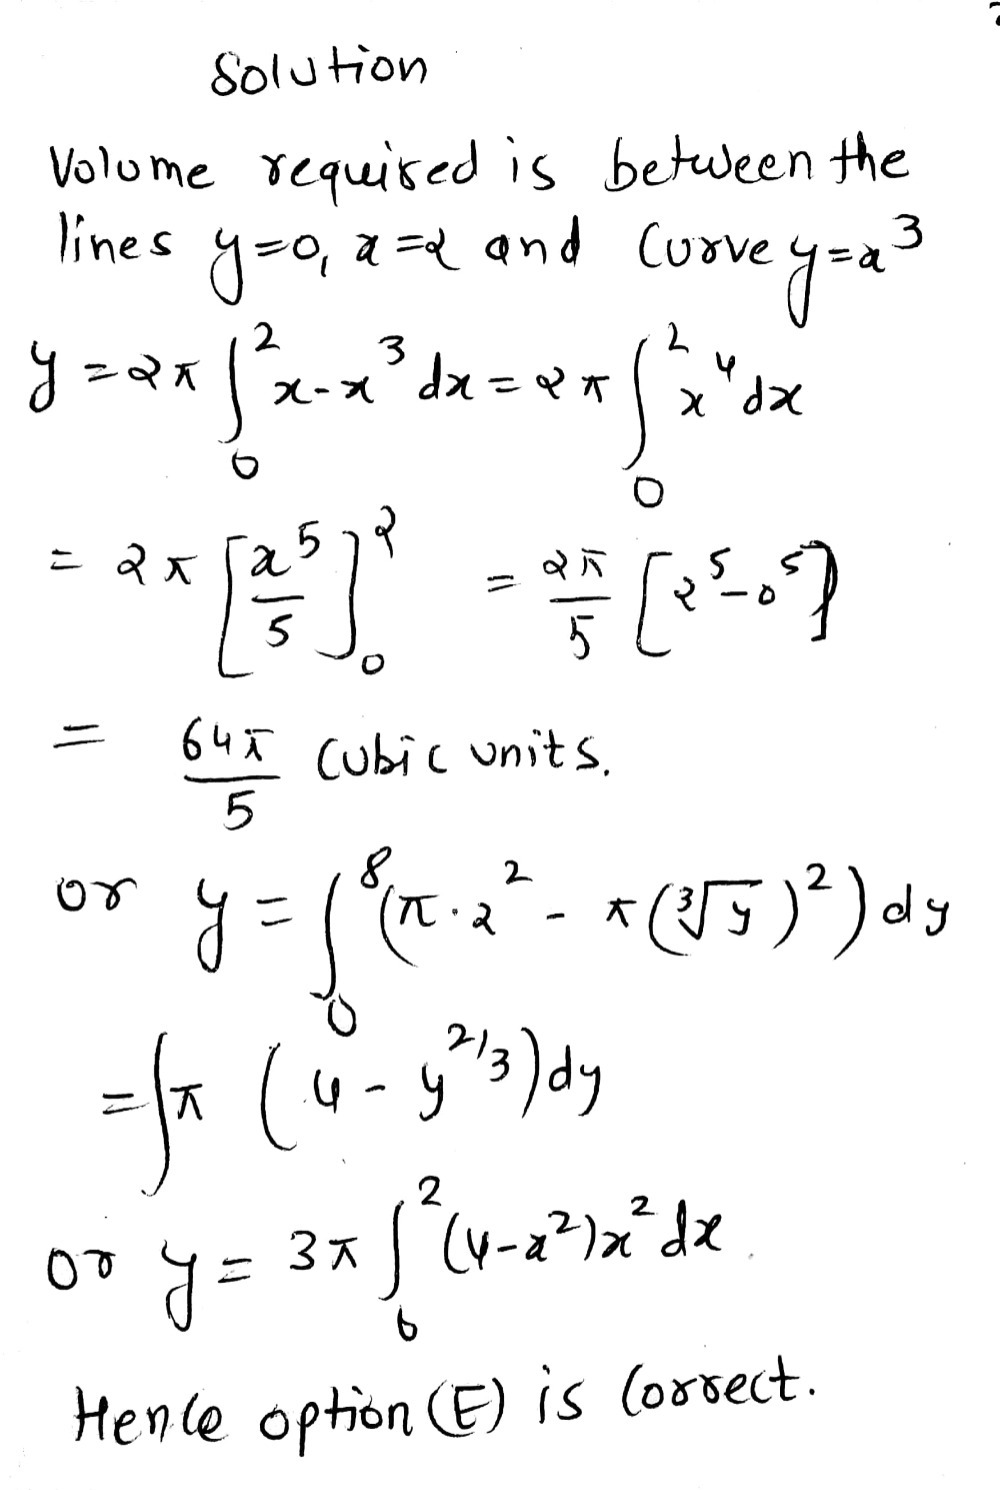 Solution
Volume required is between the
lines y=0, x=2 and curve y=x³
y = 2π ∫₀² x-x³ dx = 2π ∫₀² x⁴ dx
= 2π [x⁵/5]₀² = 2π/5 [2⁵-0⁵]
= 64π/5 cubic units.
or y = ∫₀⁸ (π·2² - π(∛y)²) dy
= ∫π (4 - y^2/3) dy
or y = 3π ∫₀² (4-x²)x² dx
Hence option (E) is correct.